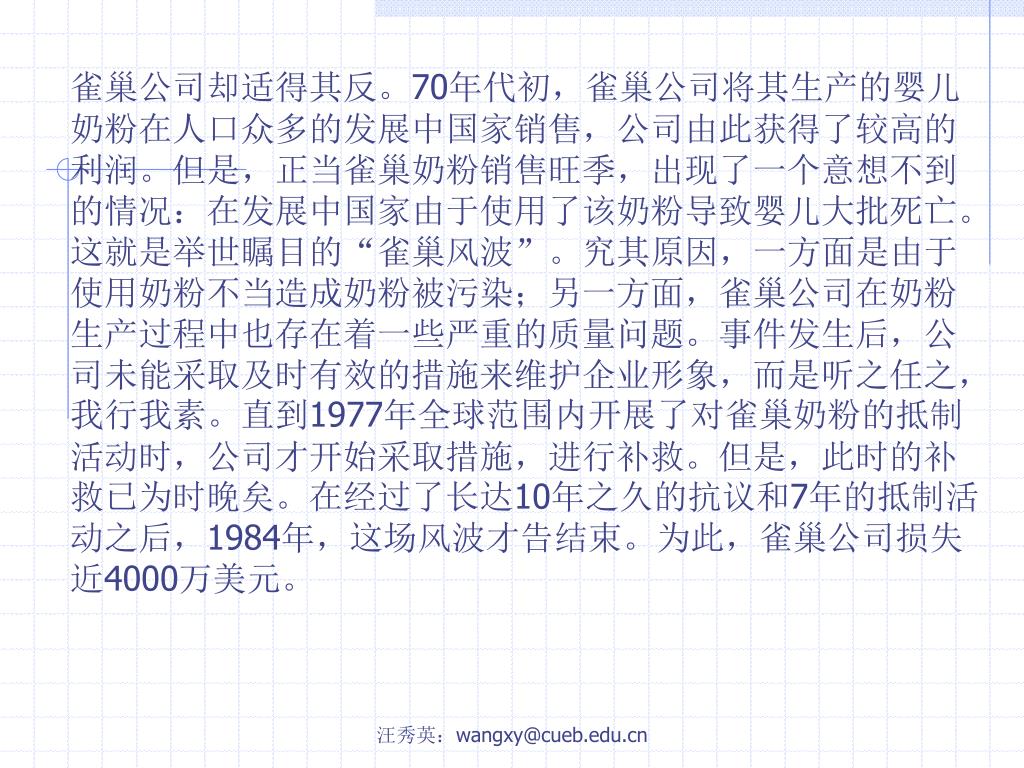 雀巢公司却适得其反。70年代初，雀巢公司将其生产的婴儿
奶粉在人口众多的发展中国家销售，公司由此获得了较高的
利润。但是，正当雀巢奶粉销售旺季，出现了一个意想不到
的情况：在发展中国家由于使用了该奶粉导致婴儿大批死亡。
这就是举世瞩目的“雀巢风波”。究其原因，一方面是由于
使用奶粉不当造成奶粉被污染；另一方面，雀巢公司在奶粉
生产过程中也存在着一些严重的质量问题。事件发生后，公
司未能采取及时有效的措施来维护企业形象，而是听之任之，
我行我素。直到1977年全球范围内开展了对雀巢奶粉的抵制
活动时，公司才开始采取措施，进行补救。但是，此时的补
救已为时晚矣。在经过了长达10年之久的抗议和7年的抵制活
动之后，1984年，这场风波才告结束。为此，雀巢公司损失
近4000万美元。
汪秀英：wangxy@cueb.edu.cn